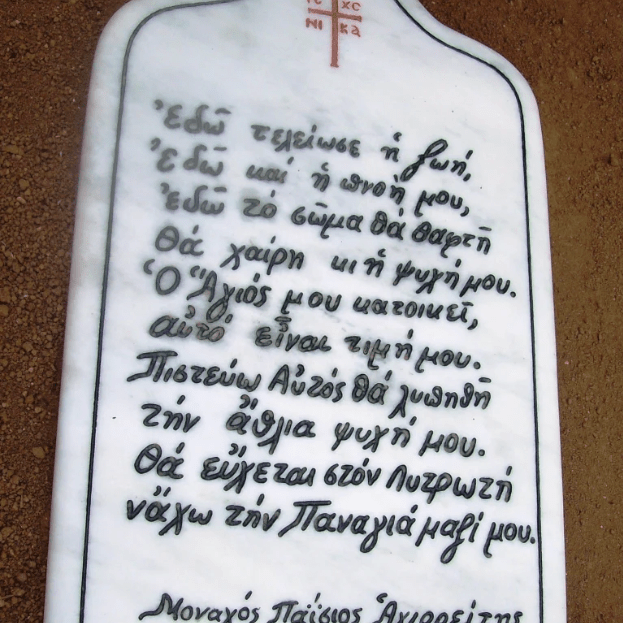 ΙC ΧC
ΝΙ ΚΑ
Ἐδῶ τελείωσε ἡ ζωή,
Ἐδῶ καί ἡ πνοή μου,
Ἐδῶ τό σῶμα θά θαφτῆ
Θά χαίρη κι ἡ ψυχή μου.
Ὁ Ἅγιός μου κατοικεῖ,
αὐτό εἶναι τιμή μου.
Πιστεύω Αὐτός θά λυπηθῆ
τήν ἄθλια ψυχή μου.
Θά εὔχεται στόν Λυτρωτή
νἄχω τήν Παναγιά μαζί μου.
Μοναχός Παΐσιος Ἁγιορείτης